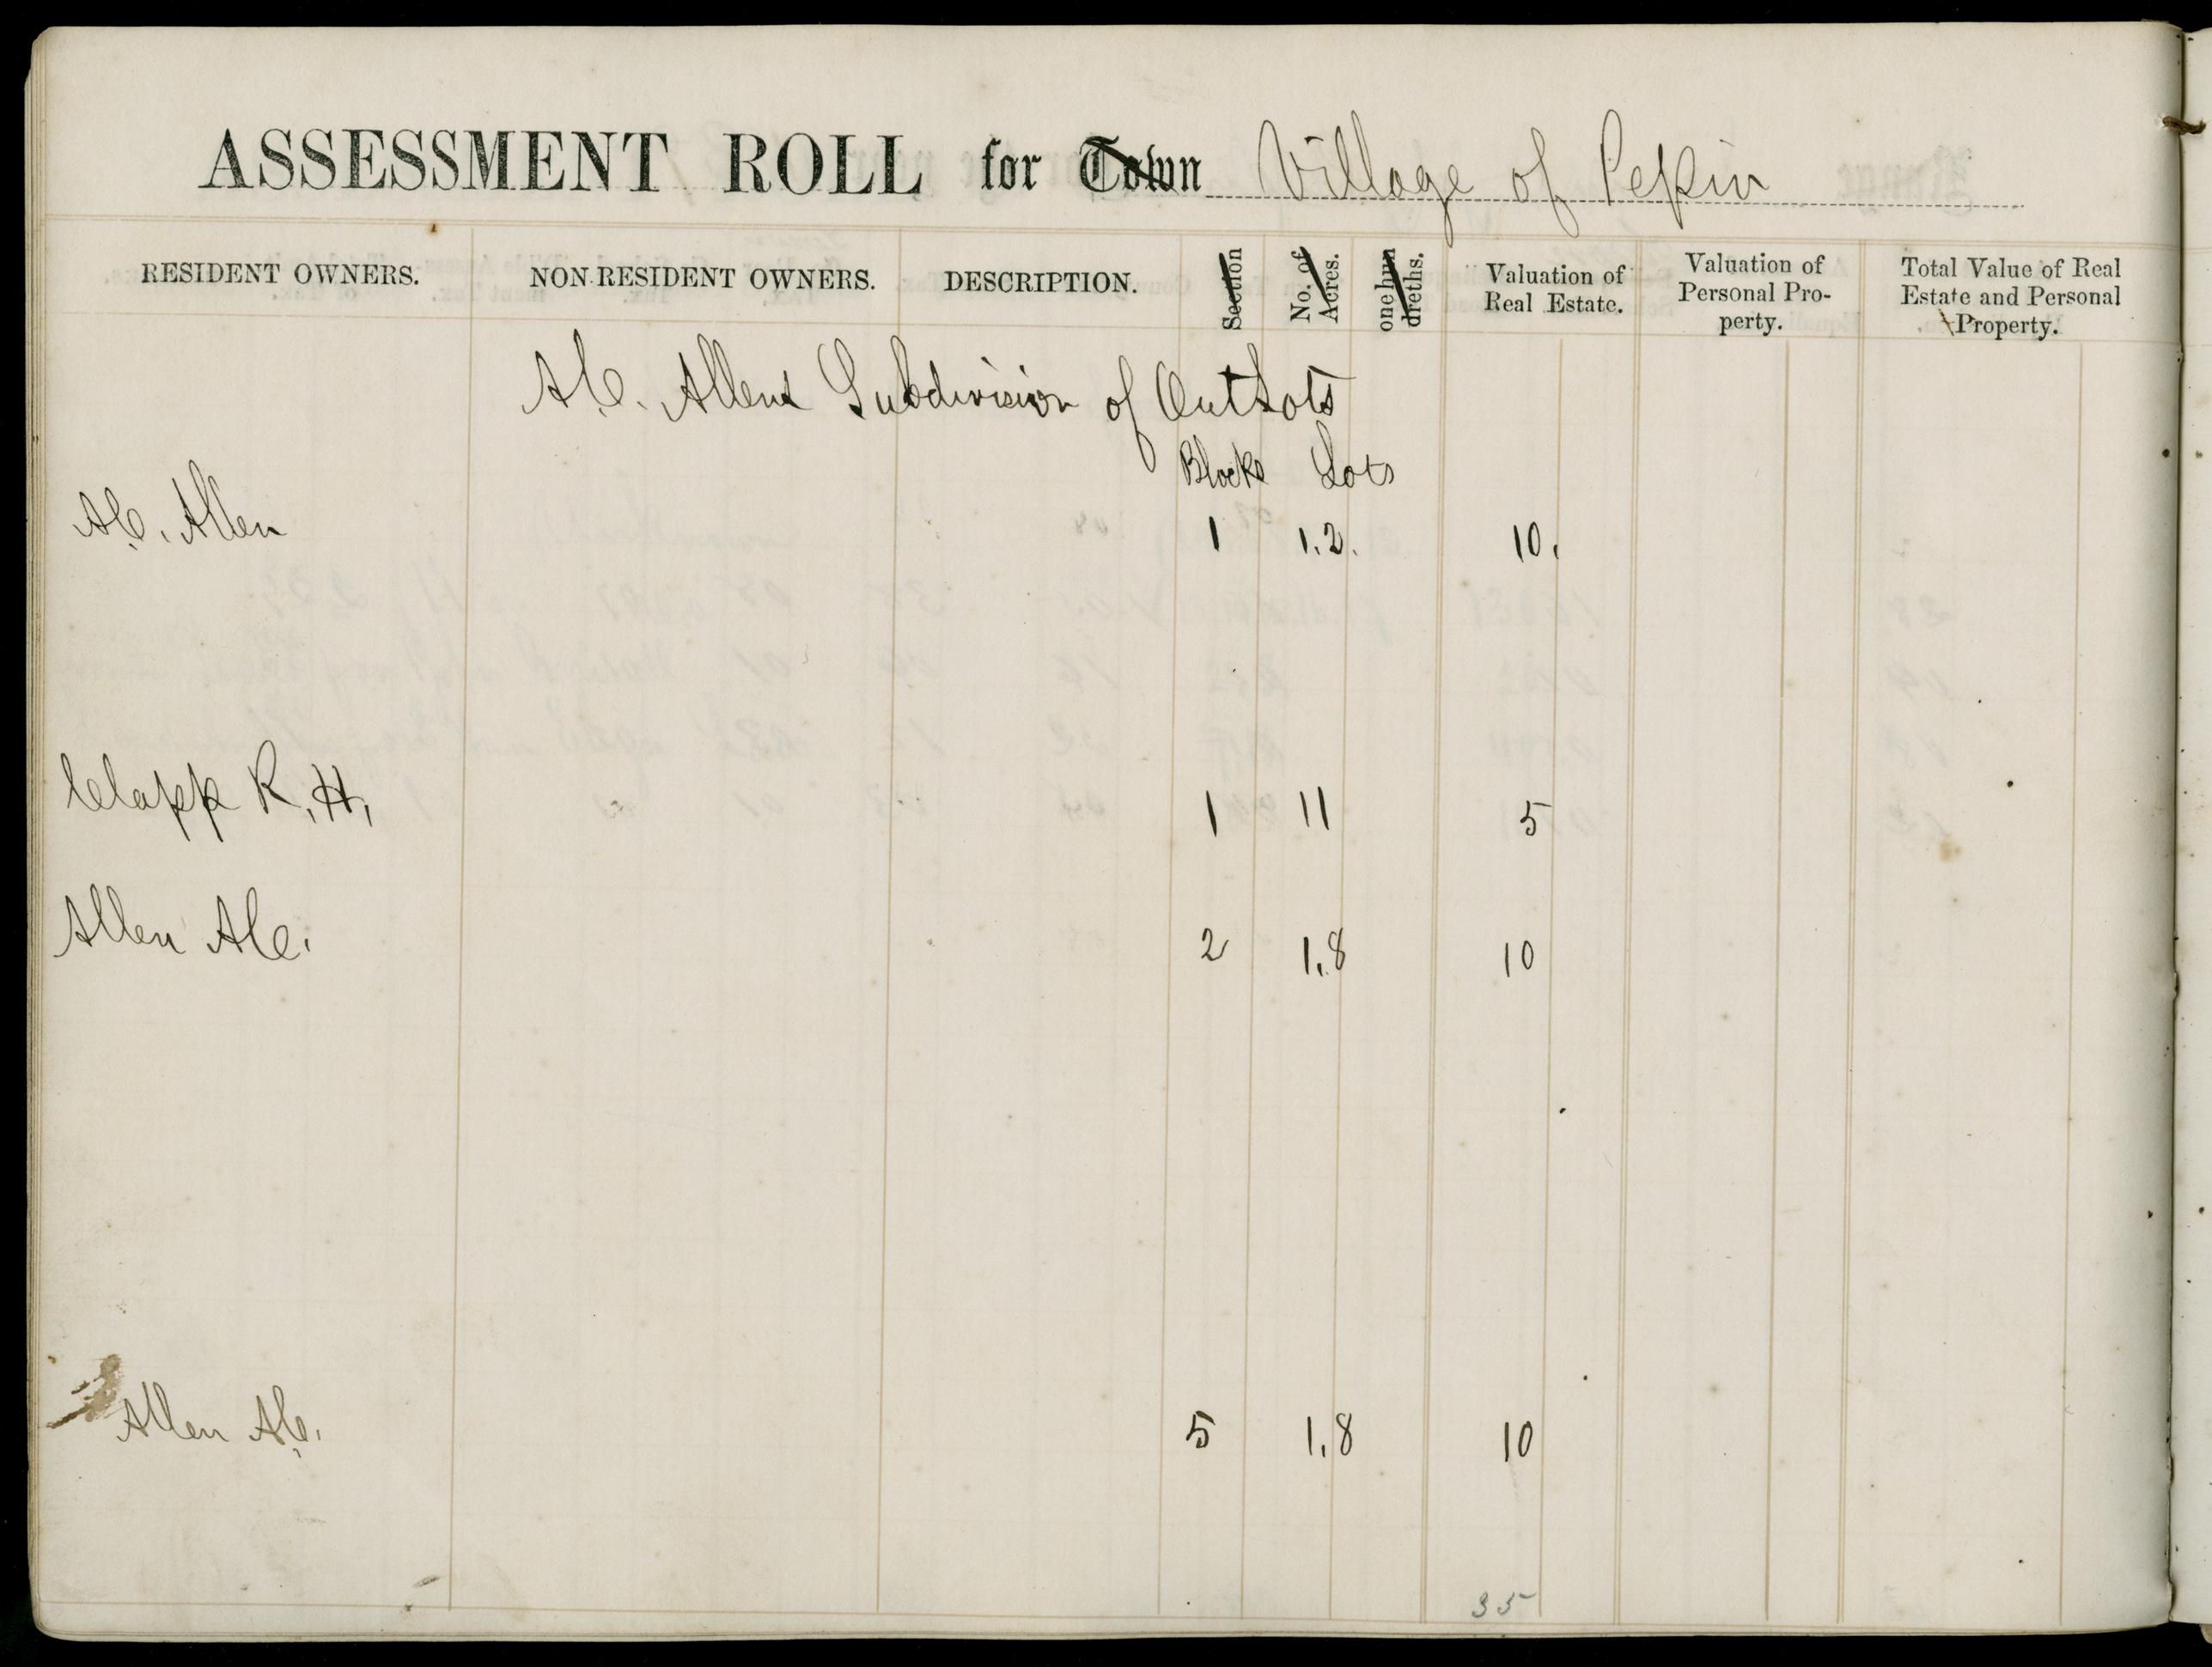 ASSESSMENT ROLL for Town Village of Pepin
RESIDENT OWNERS. NON-RESIDENT OWNERS. DESCRIPTION. Section No. of Acres. one hundreths. Valuation of Real Estate. Valuation of Personal Property. Total Value of Real Estate and Personal Property.
A.C. Allens Subdivision of OutLots
Blocks Lots
A.C. Allen 1 1.2. 10.
Clapp R. H. 1 11 5
Allen A.C. 2 1.8 10
Allen A.C. 5 1.8 10
35